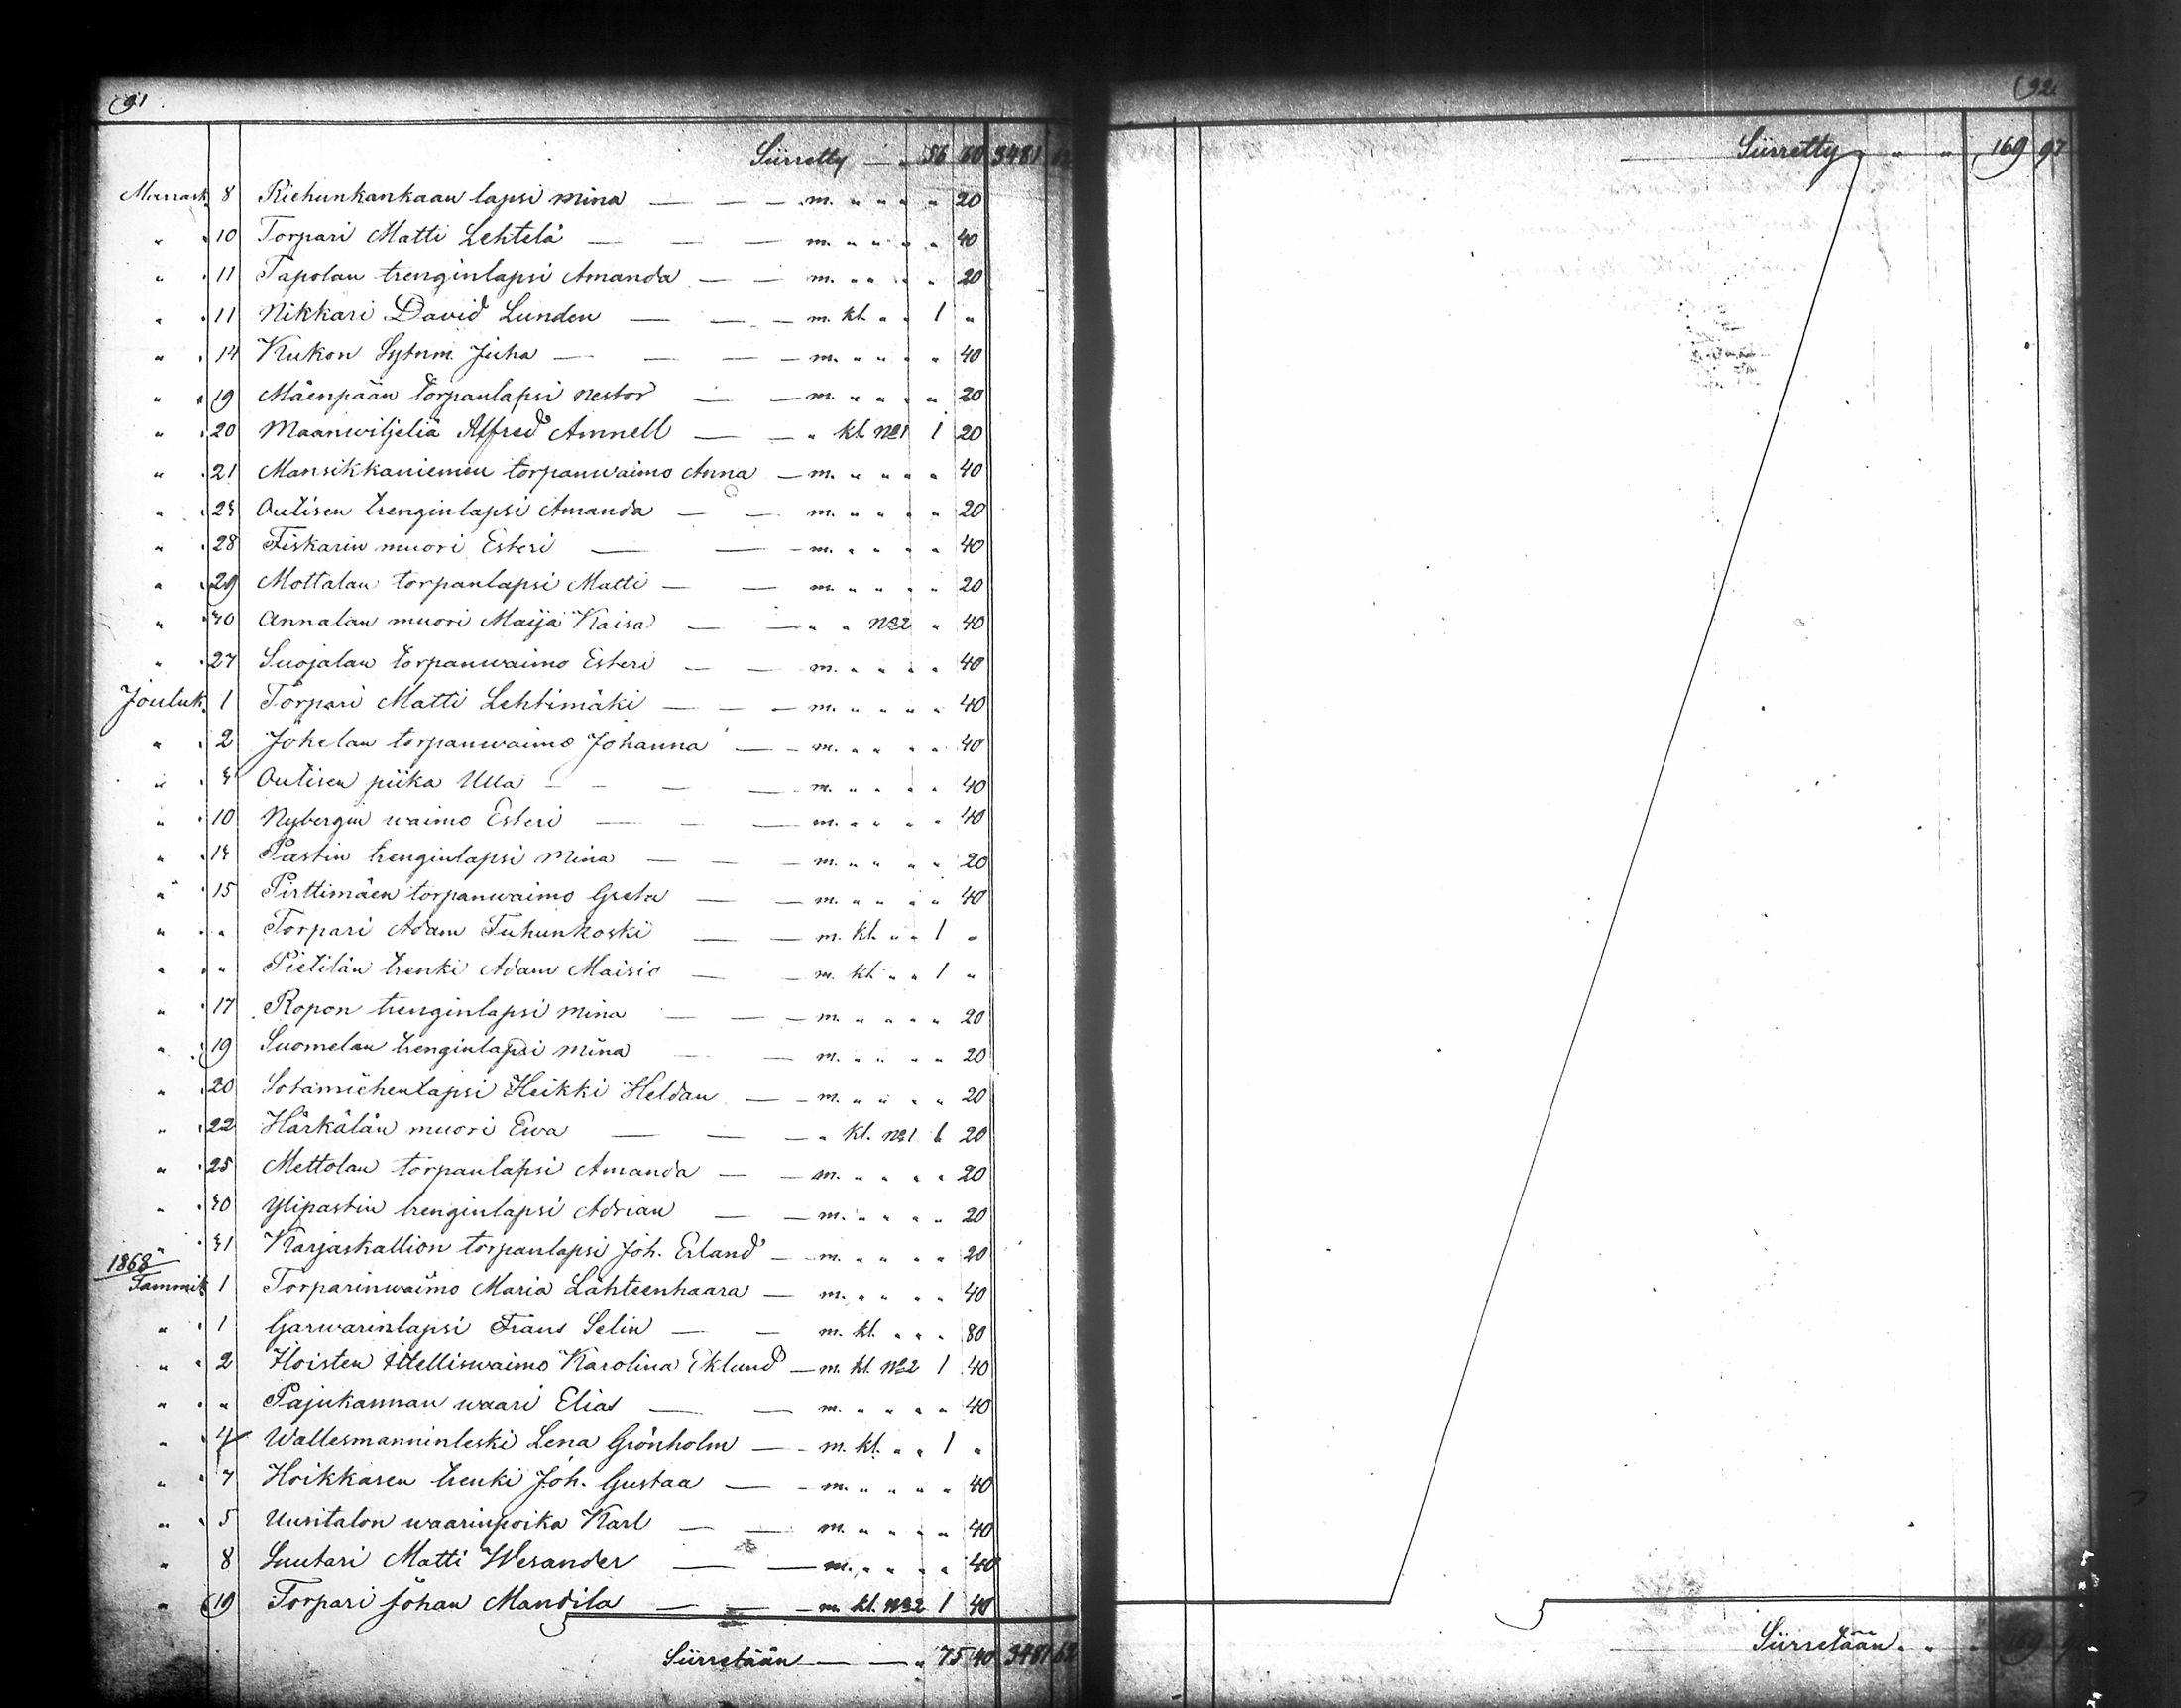 91
Siirretty — " 56 60 3481 62
Marrask. 8 Riehunkankaan lapsi Mina — — — m. " " " " 20
" " 10 Torpari Matti Lehtelä — — — m. " " " " 40
" " 11 Tapolan trenginlapsi Amanda — — m. " " " " 20
" " 11 Nikkari David Lunden — — — m. kl. " " 1 "
" " 14 Kukon Sytnm. Juha — — — m. " " " " 40
" " 19 Mäenpään torpanlapsi Nestor — — m. " " " " 20
" " 20 Maanwiljeliä Alfred Amnell — — " kl. No1 1 20
" " 21 Mansikkaniemen torpanwaimo Anna — m. " " " " 40
" " 23 Outisen trenginlapsi Amanda — — m. " " " " 20
" " 28 Fiskarin muori Esteri — — m. " " " " 40
" " 29 Mottalan torpanlapsi Matti — — m. " " " " 20
" " 30 Annalan muori Maija Kaisa — — " " No2 " 40
" " 27 Suojalan torpanwaimo Esteri — — m. " " " " 40
Jouluk. 1 Torpari Matti Lehtimäki — — — m. " " " " 40
" " 2 Jokelan torpanwaimo Johanna — — m. " " " " 40
" " 3 Outisen piika Ulla — — — — m. " " " " 40
" " 10 Nybergin waimo Esteri — — — m. " " " " 40
" " 13 Pastin trenginlapsi Mina — — — m. " " " " 20
" " 15 Pirttimäen torpanwaimo Greta — — m. " " " " 40
" " " Torpari Adam Tuhunkoski — — m. kl. " " 1 "
" " " Pietilän trenki Adam Maisio — — m. kl. " " 1 "
" " 17 Ropon trenginlapsi Mina — — — m. " " " " 20
" " 19 Suomelan trenginlapsi Mina — — m. " " " " 20
" " 20 Sotamiehenlapsi Heikki Heldan — — m. " " " " 20
" " 22 Härkälän muori Ewa — — — " kl. No1 1 20
" " 25 Mettolan torpanlapsi Amanda — — m. " " " " 20
" " 30 Ylipastin trenginlapsi Adrian — — m. " " " " 20
" " 31 Karjaskallion torpanlapsi Joh. Erland — m. " " " " 20
1868
Tammik 1 Torparinwaimo Maria Lähteenhaara — m. " " " " 40
" " 1 Garwarinlapsi Frans Selin — — m. kl. " " " 80
" " 2 Hoisten itelliswaimo Karolina Eklund — m. kl. No2 1 40
" " " Pajukannan waari Elias — — m. " " " " 40
" " 4 Wallesmanninleski Lena Grönholm — — m. kl. " " 1 "
" " 7 Hoikkasen trenki Joh. Gustaa — — m. " " " " 40
" " 5 Uusitalon waarinpoika Karl — — m. " " " " 40
" 8 Suutari Matti Wesander — — m. " " " " 40
" 19 Torpari Johan Mandila — — — m. kl. No2 1 40
Siirretään — — " 75 40 3481 62
92
Siirretty " " " 169 97
Siirretään " " " 169